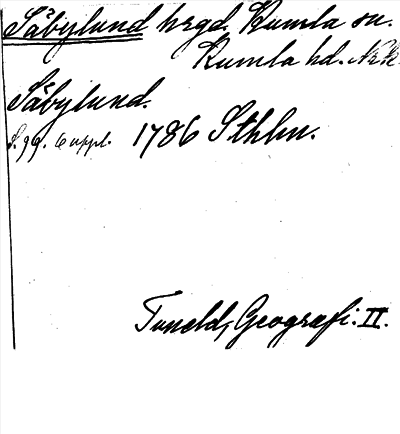 Säbylund hrgd. Kumla sn.
Kumla hd. Nrk.
Säbylund.
S. 99. 6 uppl. 1786 Sthlm.
Tuneld, Geografi. II.